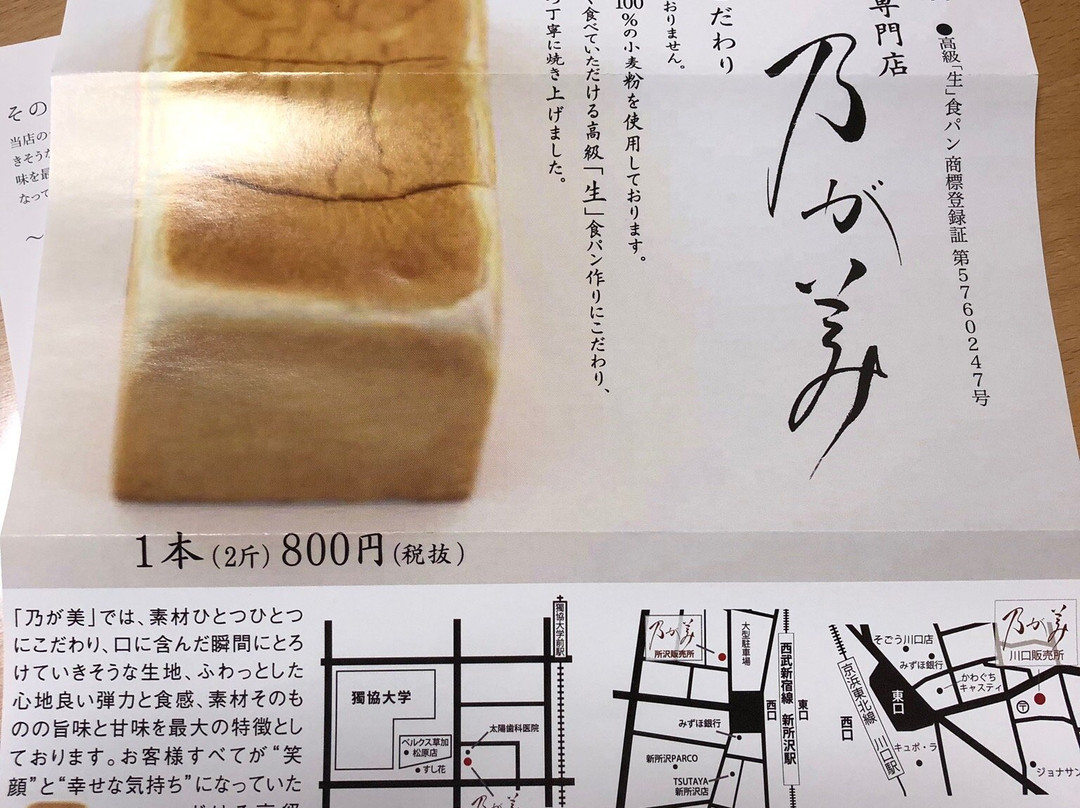 ●高級「生」食パン 商標登録証 第5760247号
専門店
乃が美
だわり
おりません。
100%の小麦粉を使用しております。
食べていただける高級「生」食パン作りにこだわり、
丁寧に焼き上げました。
その
当店の
きそうな
味を最
なって
〜
1本(2斤)800円(税抜)
「乃が美」では、素材ひとつひとつ
にこだわり、口に含んだ瞬間にとろ
けていきそうな生地、ふわっとした
心地良い弾力と食感、素材そのも
のの旨味と甘味を最大の特徴とし
ております。お客様すべてが“笑
顔”と“幸せな気持ち”になっていた
獨協大学前駅
獨協大学
太陽歯科医院
ベルクス草加
松原店
すし花
乃が美
乃が美
所沢販売所
大型駐車場
西武新宿線 新所沢駅
西口
東口
みずほ銀行
新所沢PARCO
TSUTAYA
新所沢店
乃が美
川口販売所
そごう川口店
みずほ銀行
かわぐち
キャスティ
京浜東北線 川口駅
東口
西口
〒
キュポ・ラ
ジョナサン